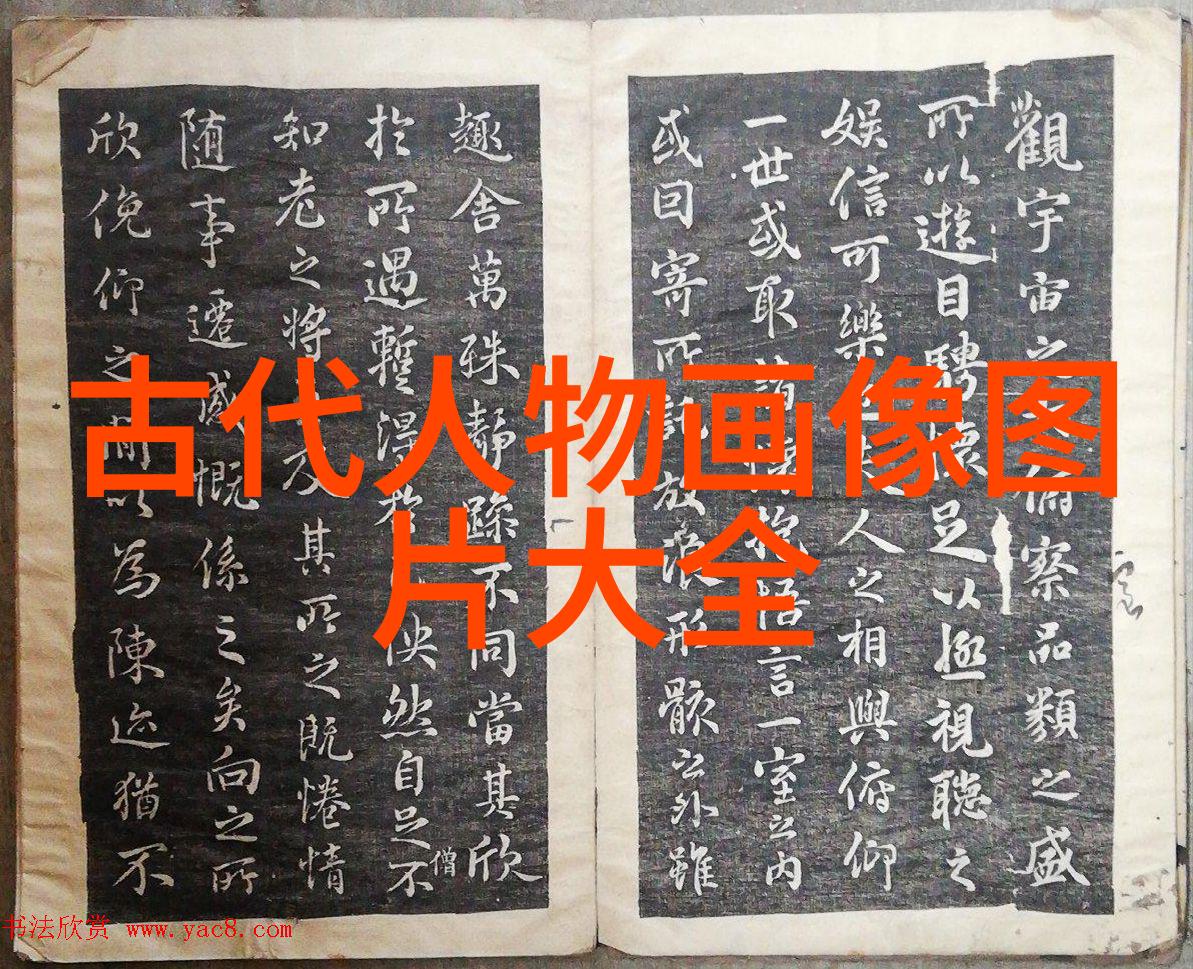 觀宇宙之俯察品類之盛
所以遊目騁懷足以極視聽之
娱信可樂人之相與俯仰
一世或取諸懷抱悟言一室之内
或因寄所託放浪形骸之外雖
趣舍萬殊靜躁不同當其欣
於所遇暫得於快然自足不
僧
知老之將及其所之既惓情
随事遷感慨係之矣向之所
欣俛仰之間以為陳迹猶不
古代人物画像图
片大全
书法欣赏 www.yac8.com